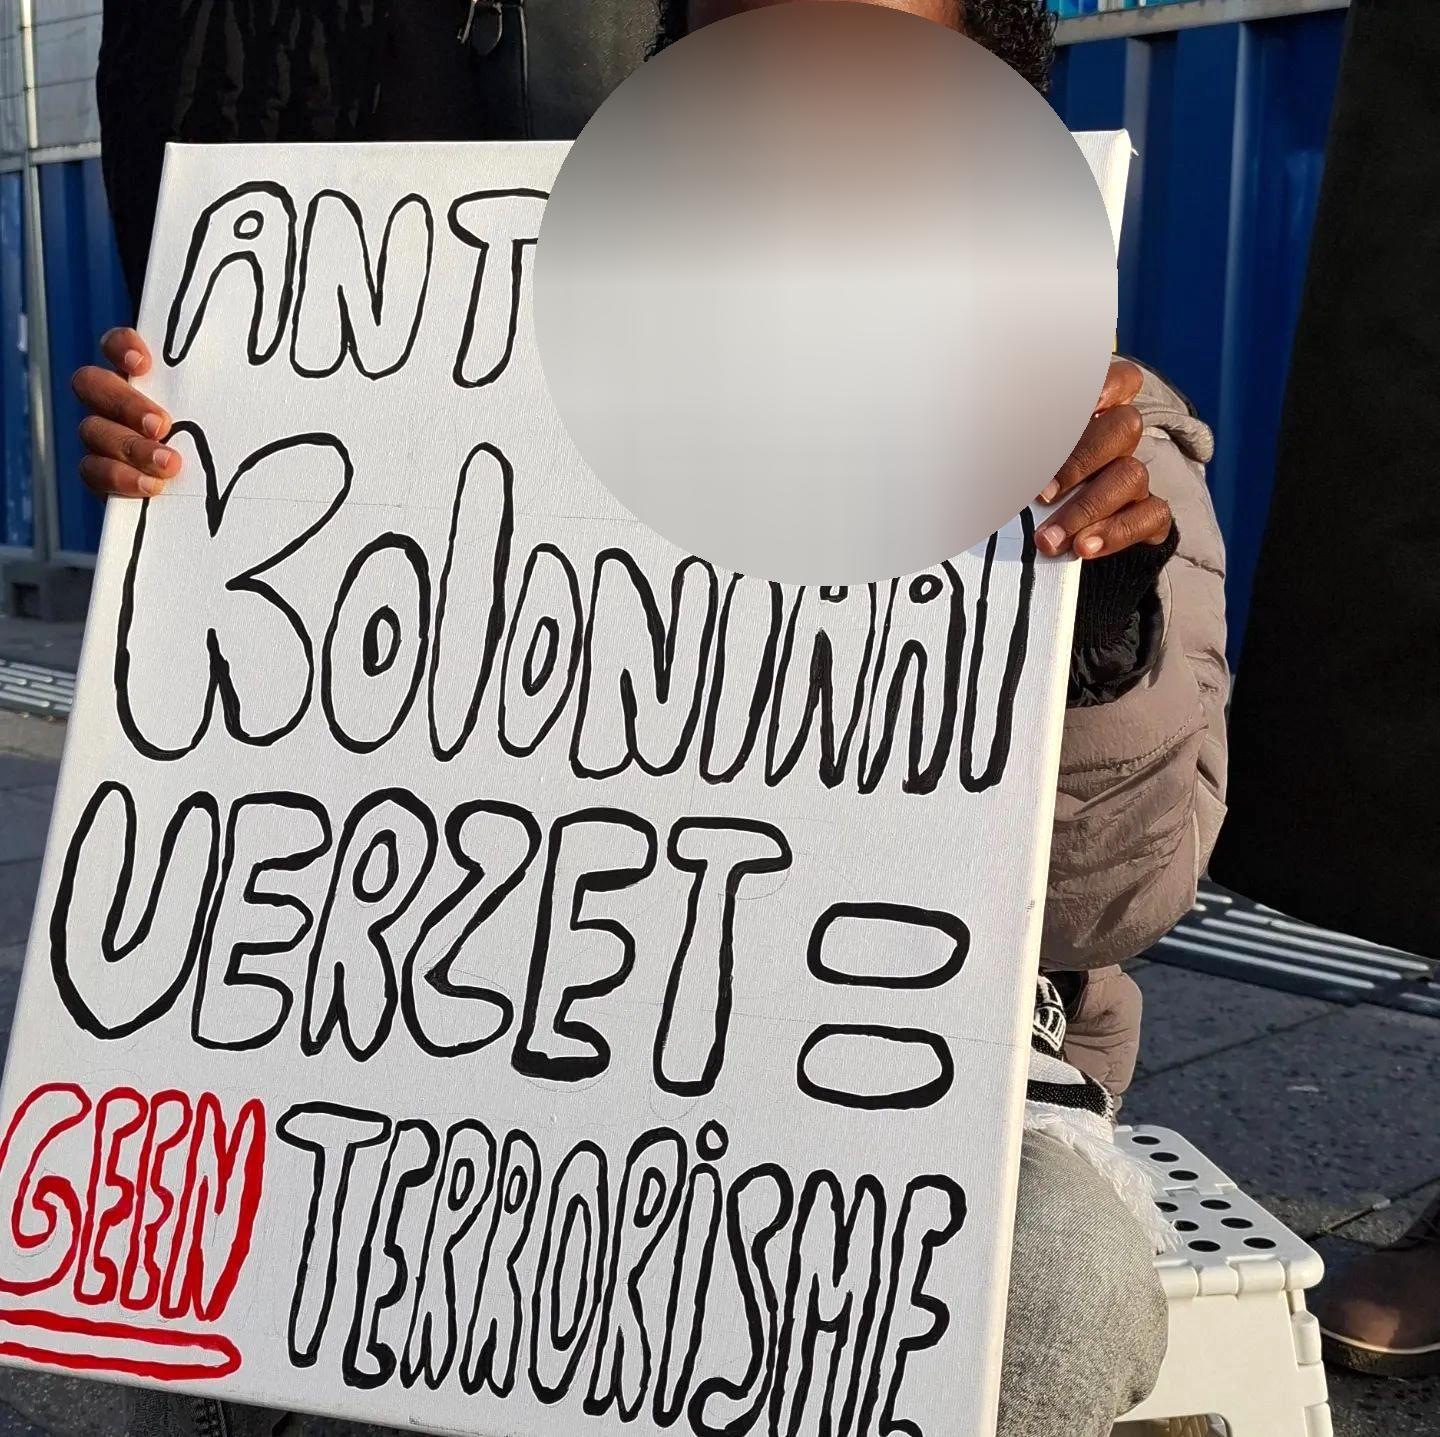 ANT
KOLONIAAL
VERZET =
GEEN TERRORISME